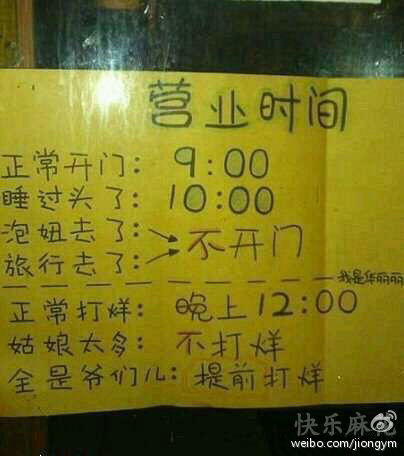 营业时间
正常开门：9:00
睡过头了：10:00
泡妞去了：
不开门
旅行去了：
我是华丽丽
正常打烊：晚上12:00
姑娘太多：不打烊
全是爷们儿：提前打烊
快乐麻花
weibo.com/jiongym